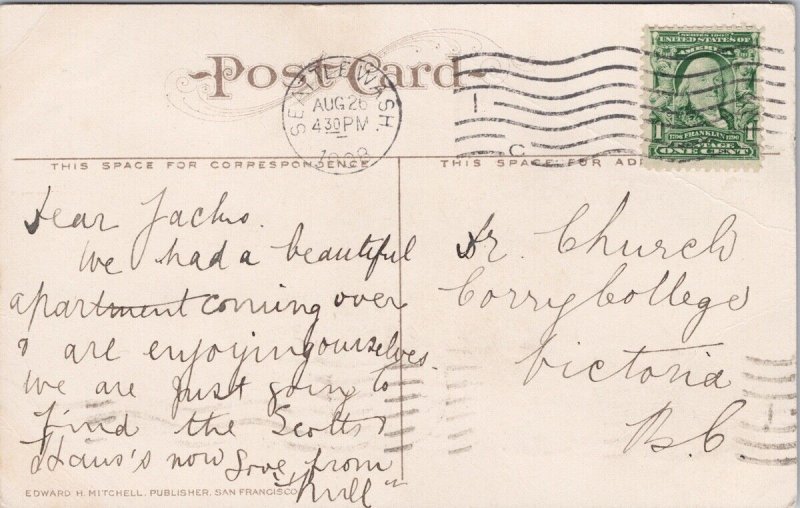 Post Card
SEATTLE WASH.
AUG 26
430 PM
1908
1
C
SERIES 1902
UNITED STATES OF
AMERICA
1706 FRANKLIN 1790
POSTAGE
ONE CENT
THIS SPACE FOR CORRESPONDENCE
THIS SPACE FOR AD
Dear Jacks.
We had a beautiful
apartment coming over
& are enjoying ourselves.
We are just going to
find the Scotts
& now Love from
EDWARD H. MITCHELL, PUBLISHER, SAN FRANCISCO
Dr. Church
Corry College
Victoria
B.C.